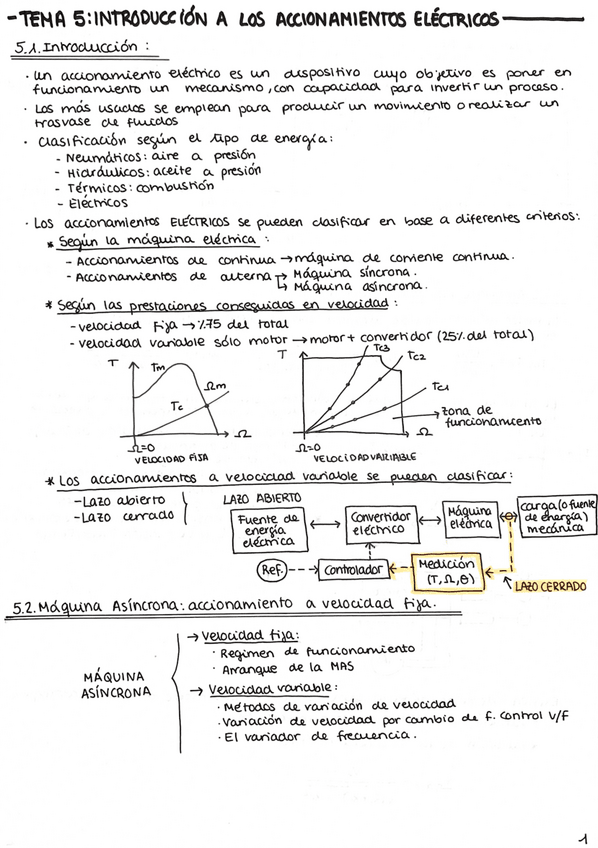 - TEMA 5: INTRODUCCIÓN A LOS ACCIONAMIENTOS ELÉCTRICOS
5.1. Introducción :
· Un accionamiento eléctrico es un dispositivo cuyo objetivo es poner en
funcionamiento un mecanismo, con capacidad para invertir un proceso.
· Los más usados se emplean para producir un movimiento o realizar un
trasvase de fluidos
· Clasificación según el tipo de energía:
- Neumáticos: aire a presión
- Hidráulicos: aceite a presión
- Térmicos: combustión
- Eléctricos
· Los accionamientos ELÉCTRICOS se pueden clasificar en base a diferentes criterios:
* Según la máquina eléctrica :
- Accionamientos de continua → máquina de corriente continua.
- Accionamientos de alterna → Máquina síncrona.
↳ Máquina asíncrona.
* Según las prestaciones conseguidas en velocidad :
- velocidad Fija → %75 del total
- velocidad variable sólo motor → motor + convertidor (25% del total)
T Tm Ωm Tc Ω
Ω=0
VELOCIDAD FIJA
T Tc3 Tc2 Tc1
zona de
funcionamiento
Ω
Ω=0
VELOCIDAD VARIABLE
* Los accionamientos a velocidad variable se pueden clasificar:
- Lazo abierto
- Lazo cerrado
LAZO ABIERTO
Fuente de
energía
eléctrica
Convertidor
eléctrico
Máquina
eléctrica
carga (o fuente
de energía)
mecánica
Ref.
Controlador
Medición
(T, Ω, θ)
LAZO CERRADO
5.2. Máquina Asíncrona: accionamiento a velocidad fija.
MÁQUINA
ASÍNCRONA
→ Velocidad fija:
· Regimen de funcionamiento
· Arranque de la MAS
→ Velocidad variable:
· Métodos de variación de velocidad
· Variación de velocidad por cambio de f. Control V/F
· El variador de frecuencia.
1